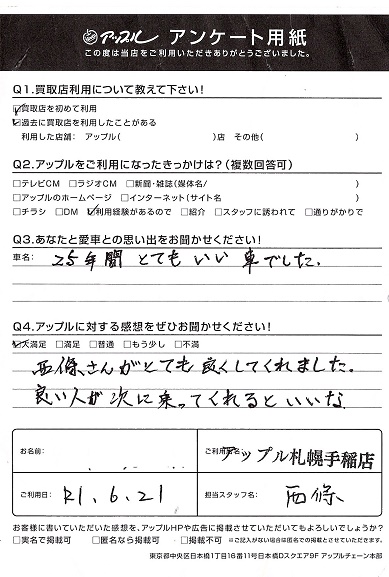 アップル アンケート用紙
この度は当店をご利用いただきありがとうございました。
Q1.買取店利用について教えて下さい!
☑買取店を初めて利用
☑過去に買取店を利用したことがある
利用した店舗: アップル( )店 その他( )
Q2.アップルをご利用になったきっかけは?(複数回答可)
□テレビCM □ラジオCM □新聞・雑誌(媒体名/ )
□アップルのホームページ □インターネット(サイト名 )
□チラシ □DM ☑利用経験があるので □紹介 □スタッフに誘われて □通りがかりで
Q3.あなたと愛車との思い出をお聞かせください!
車名: 25年間 とても いい 車でした.
Q4.アップルに対する感想をぜひお聞かせください!
☑大満足 □満足 □普通 □もう少し □不満
西條さんがとても良くしてくれました.
良い人が次に乗ってくれるといいな
お名前:
ご利用店名: アップル札幌手稲店
ご利用日: R1.6.21
担当スタッフ名: 西條
お客様に書いていただいた感想を、アップルHPや広告に掲載させていただいてもよろしいでしょうか?
□実名で掲載可 □匿名なら掲載可 □掲載不可 ※ご記入がない場合は匿名での掲載とさせていただきます。
東京都中央区日本橋1丁目16番11号日本橋Dスクエア9F アップルチェーン本部